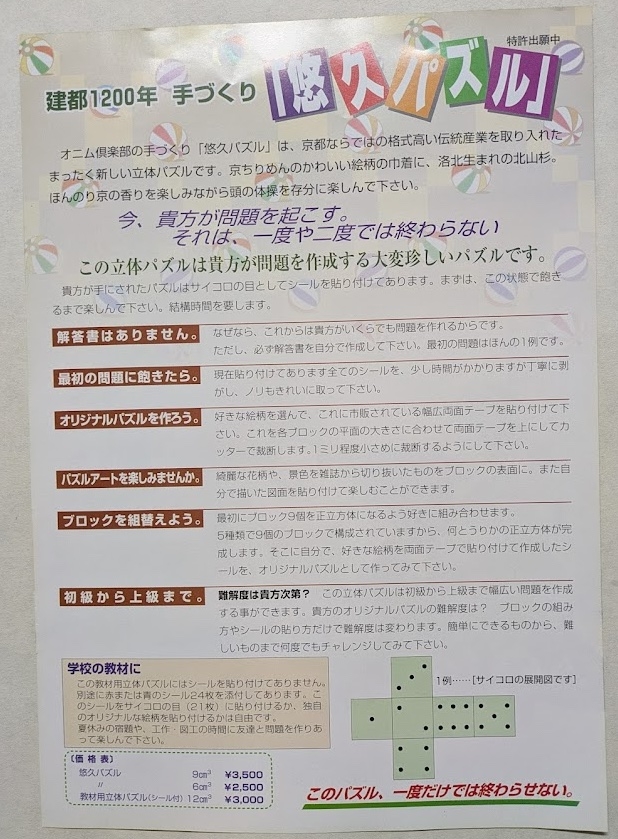 特許出願中
建都1200年 手づくり「悠久パズル」
オニム倶楽部の手づくり「悠久パズル」は、京都ならではの格式高い伝統産業を取り入れた
まったく新しい立体パズルです。京ちりめんのかわいい絵柄の巾着に、洛北生まれの北山杉。
ほんのり京の香りを楽しみながら頭の体操を存分に楽しんで下さい。
今、貴方が問題を起こす。
それは、一度や二度では終わらない
この立体パズルは貴方が問題を作成する大変珍しいパズルです。
貴方が手にされたパズルはサイコロの目としてシールを貼り付けてあります。まずは、この状態で飽き
るまで楽しんで下さい。結構時間を要します。
解答書はありません。
なぜなら、これからは貴方がいくらでも問題を作れるからです。
ただし、必ず解答書を自分で作成して下さい。最初の問題はほんの1例です。
最初の問題に飽きたら。
現在貼り付けてあります全てのシールを、少し時間がかかりますが丁寧に剥
がし、ノリもきれいに取って下さい。
オリジナルパズルを作ろう。
好きな絵柄を選んで、これに市販されている幅広両面テープを貼り付けて下
さい。これを各ブロックの平面の大きさに合わせて両面テープを上にしてカ
ッターで裁断します。1ミリ程度小さめに裁断するようにして下さい。
パズルアートを楽しみませんか。
綺麗な花柄や、景色を雑誌から切り抜いたものをブロックの表面に。また自
分で描いた図面を貼り付けて楽しむことができます。
ブロックを組替えよう。
最初にブロック9個を正立方体になるよう好きに組み合わせます。
5種類で9個のブロックで構成されていますから、何とうりかの正立方体が完
成します。そこに自分で、好きな絵柄を両面テープで貼り付けて作成したシ
ールを、オリジナルパズルとして作ってみて下さい。
初級から上級まで。
難解度は貴方次第? この立体パズルは初級から上級まで幅広い問題を作成
する事ができます。貴方のオリジナルパズルの難解度は? ブロックの組み
方やシールの貼り方だけで難解度は変わります。簡単にできるものから、難
しいものまで何度でもチャレンジしてみて下さい。
学校の教材に
この教材用立体パズルにはシールを貼り付けてありません。
別途に赤または青のシール24枚を添付してあります。こ
のシールをサイコロの目(21枚)に貼り付けるか、独自
のオリジナルな絵柄を貼り付けるかは自由です。
夏休みの宿題や、工作・図工の時間に友達と問題を作りあ
って楽しんで下さい。
〔価格表〕
悠久パズル 9cm³ ¥3,500
〃 6cm³ ¥2,500
教材用立体パズル(シール付) 12cm³ ¥3,000
1例……[サイコロの展開図です]
このパズル、一度だけでは終わらせない。